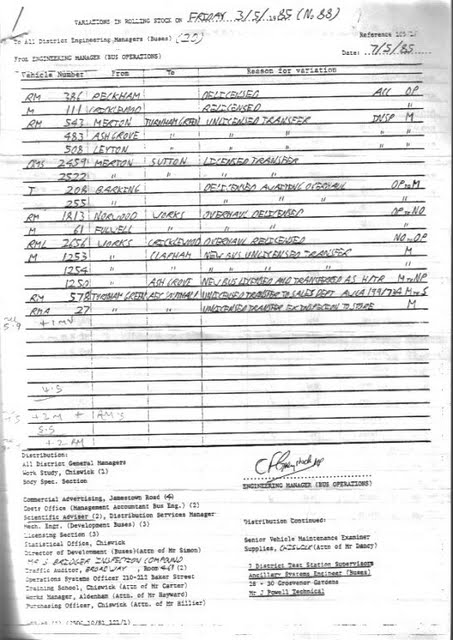 VARIATIONS IN ROLLING STOCK ON FRIDAY 3/5/1985 (No. 88)
To All District Engineering Managers (Buses) (20)
Reference
From ENGINEERING MANAGER (BUS OPERATIONS)
Date: 7/5/85
Vehicle Number From To Reason for variation
RM 386 PECKHAM DELICENSED ACC OP
M 111 CRICKLEWOOD RELICENSED "
RM 543 MERTON TURNHAM GREEN UNLICENSED TRANSFER DNSP M
483 ASH GROVE " " " "
508 LEYTON " " " "
DMS 2459 MERTON SUTTON LICENSED TRANSFER
2522 " " "
T 208 BARKING DELICENSED AWAITING OVERHAUL OP to M
255 " " "
RM 1813 NORWOOD WORKS OVERHAUL DELICENSED OP to NO
M 61 FULWELL " " "
RML 2656 WORKS CRICKLEWOOD OVERHAUL RELICENSED NO to OP
M 1253 " CLAPHAM NEW BUS UNLICENSED TRANSFER M
1254 " " " "
1250 " ASH GROVE NEW BUS LICENSED AND TRANSFERRED AS H/TR M to NP
RM 57 TURNHAM GREEN UNLICENSED TRANSFER TO SALES DEPT M to S
RMA 27 " UNLICENSED TRANSFER EX INSPECTION TO STORE M
5.9 + 1 M
4.5
+ 2 M + 1 RM'S
5.5
+ 2 RM
Distribution:
All District General Managers
Work Study, Chiswick (1)
Body Spec. Section
ENGINEERING MANAGER (BUS OPERATIONS)
Commercial Advertising, Jamestown Road
Costs Office (Management Accountant Bus Eng.) (2)
Scientific Adviser (2), Distribution Services Manager
Mech. Engr. (Development Buses) (3)
Licensing Section (3)
Statistical Office, Chiswick
Director of Development (Buses)(Attn of Mr Simon)
MR S BRIDGER INSPECTION COMPOUND
Traffic Auditor, BROADWAY, Room
Operations Systems Officer 210-212 Baker Street
Training School, Chiswick (Attn of Mr Carter)
Works Manager, Aldenham (Attn. of Mr Hayward)
Purchasing Officer, Chiswick (Attn of Mr Hillier)
Distribution Continued:
Senior Vehicle Maintenance Examiner
Supplies, CHISWICK (Attn of Mr Dancy)
7 District Test Station Supervisors
Ancillary Systems Engineer (Buses)
28 - 30 Grosvenor Gardens
Mr J Powell Technical